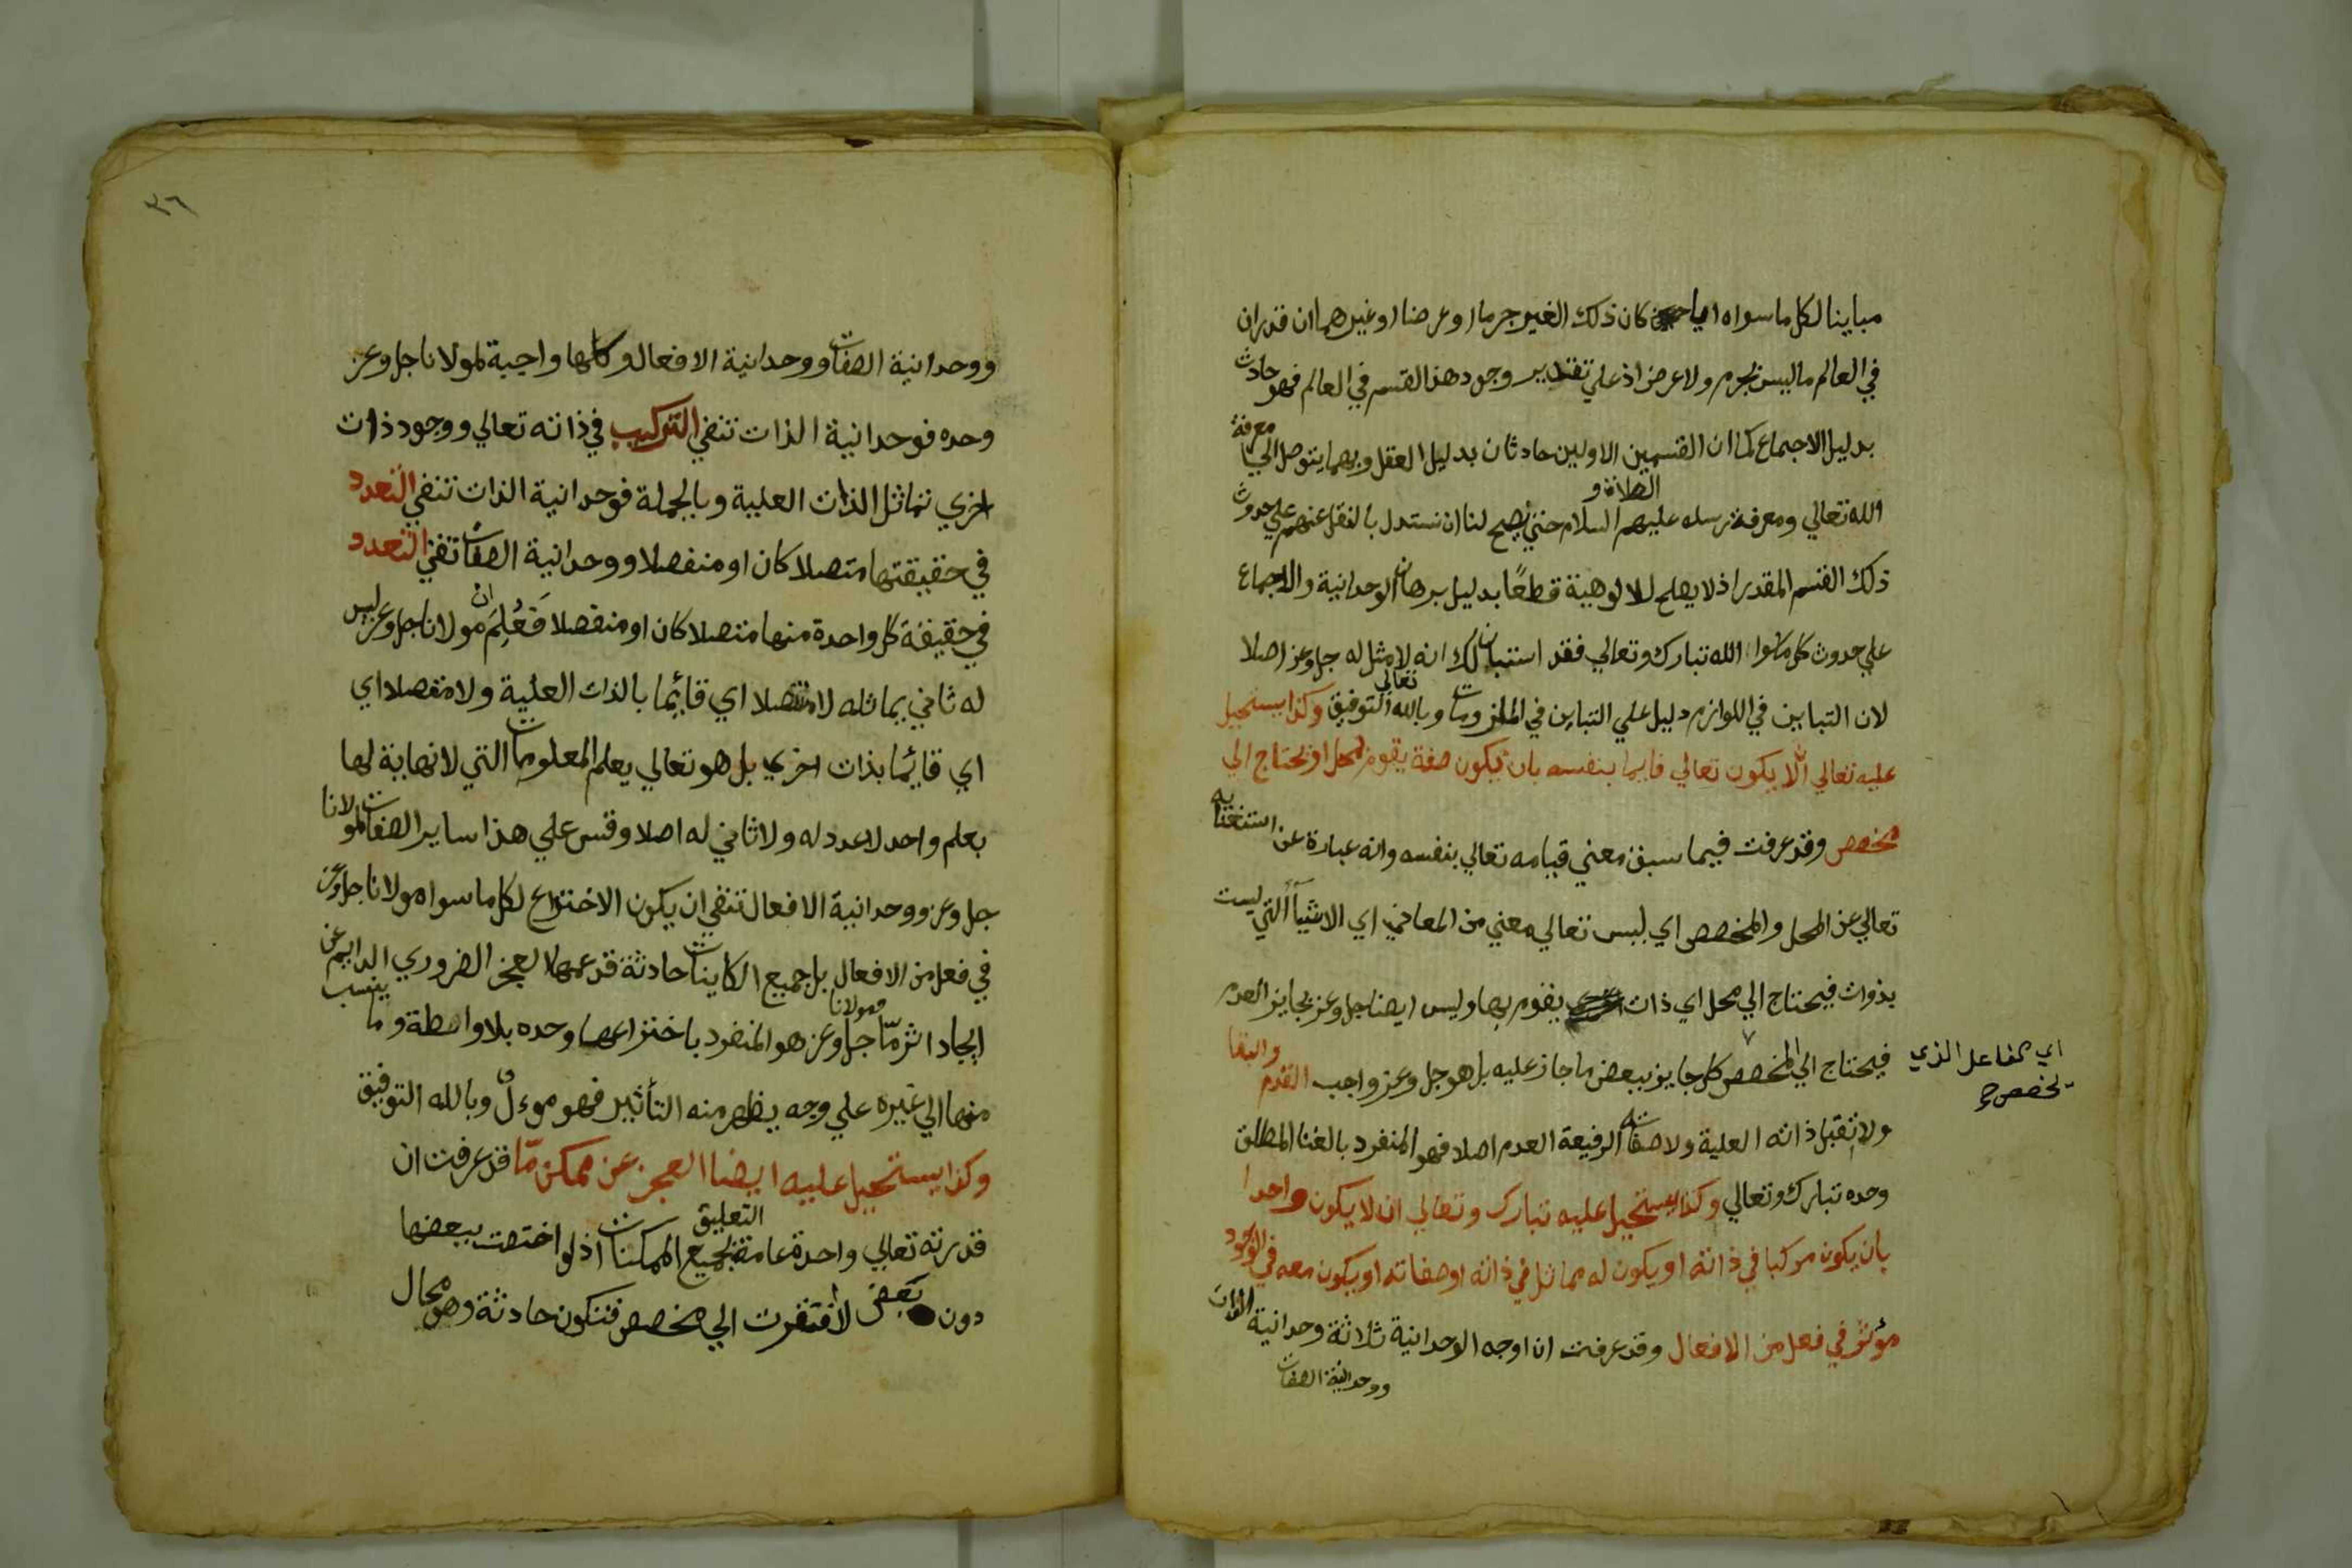 مباينا لكل ماسواه ايا كان ذلك الغير جرما او عرضا او غيرهما ان قدران
في العالم ماليس بجرم ولا عرض اذ علي تقدير وجود هذا القسم في العالم فهو حادث
بدليل الاجماع كما ان القسمين الاولين حادثان بدليل العقل وبهما يتوصل الي معرفة
الله تعالي ومعرفة رسله عليهم الصلاة و السلام حتي يصح لنا ان نستدل بالنقل عنهم علي حدوث
ذلك القسم المقدر اذ لا يصلح للالوهية قطعًا بدليل برهان الوحدانية والاجماع
علي حدوث كل ماسوا الله تبارك وتعالي فقد استبان لك انه لا مثل له جل وعز اصلا
لان التباين في اللوازم دليل علي التباين في الملزومات وبالله تعالي التوفيق وكذا يستحيل
عليه تعالي الا يكون تعالي قايما بنفسه بان يكون صفة يقوم بمحل او يحتاج الي
مخصص وقد عرفت فيما سبق معني قيامه تعالي بنفسه وانه عبارة عن استغنايه
تعالي عن المحل والمخصص اي ليس تعالي معني من المعاني اي الاشيآء التي ليست
بذوات فيحتاج الي محل اي ذات يقوم بها وليس ايضا جل وعز بجايز العدم
فيحتاج الي المخصص كل جايز ببعض ما جاز عليه بل هو جل وعز واجب القدم والبقا
اي الفاعل الذي
يخصص
ولا تقبل ذاته العلية ولا صفاته الرفيعة العدم اصلا فهو المنفرد بالغنا المطلق
وحده تبارك وتعالي وكذا يستحيل عليه تبارك وتعالي ان لا يكون واحدا
بان يكون مركبا في ذاته او يكون له مماثل في ذاته او صفاته او يكون معه في الوجود
مؤثر في فعل من الافعال وقد عرفت ان اوجه الوحدانية ثلاثة وحدانية الذات
ووحدانية الصفات
٣٦
ووحدانية الصفات ووحدانية الافعال وكلها واجبة لمولانا جل وعز
وحده فوحدانية الذات تنفي التركيب في ذاته تعالي ووجود ذات
اخري تماثل الذات العلية وبالجملة فوحدانية الذات تنفي التعدد
في حقيقتها متصلا كان او منفصلا ووحدانية الصفات تنفي التعدد
في حقيقة كل واحدة منها متصلا كان او منفصلا فَعُلِمَ ان مولانا جل وعز ليس
له ثاني يماثله لا متصلا اي قائما بالذات العلية ولا منفصلا اي
اي قائما بذات اخري بل هو تعالي يعلم المعلومات التي لا نهاية لها
بعلم واحد لا عدد له ولا ثاني له اصلا وقس علي هذا ساير الصفات لمولانا
جل وعز ووحدانية الافعال تنفي ان يكون الاختراع لكل ماسواه مولانا جل وعز
في فعل من الافعال بل جميع الكاينات حادثة قد عمها العجز الضروري الدايم عن
ايجاد اثر مّا فمولانا جل وعز هو المنفرد باختراعها وحده بلا واسطة وما ينسب
منها الي غيره علي وجه يظهر منه التأثير فهو موءول وبالله التوفيق
وكذا يستحيل عليه ايضا العجز عن ممكن مّا قد عرفت ان
قدرته تعالي واحدة عامة التعليق بجميع الممكنات اذ لو اختصت ببعضها
دون بعض لافتقرت الي مخصص فتكون حادثة وهو محال